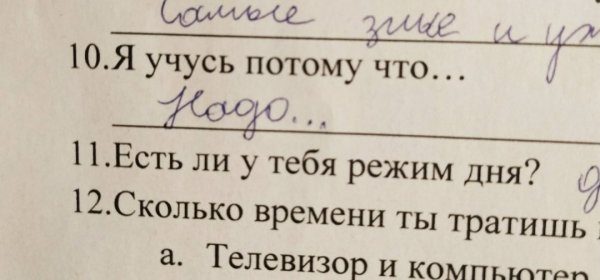 Самые злые и уж
10.Я учусь потому что…
Надо...
11.Есть ли у тебя режим дня?
12.Сколько времени ты тратишь
а. Телевизор и компьютер